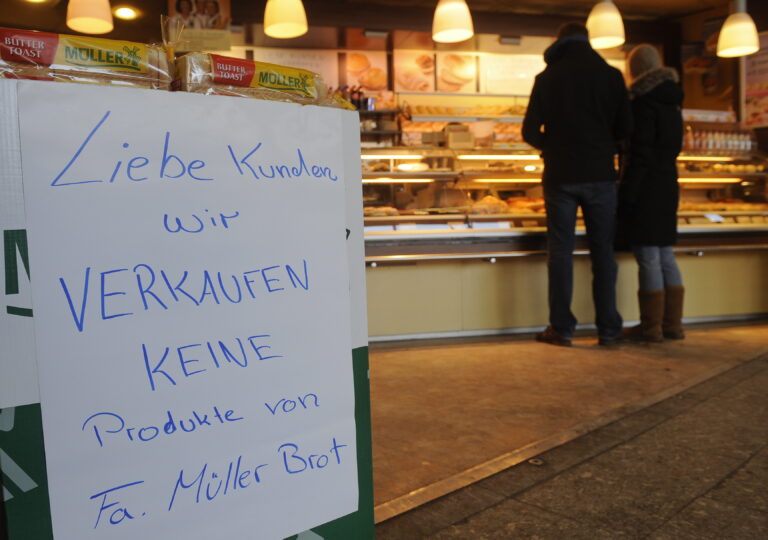 BUTTER TOAST MÜLLER
BUTTER TOAST MÜLLER
Liebe Kunden
wir
VERKAUFEN
KEINE
Produkte von
Fa. Müller Brot